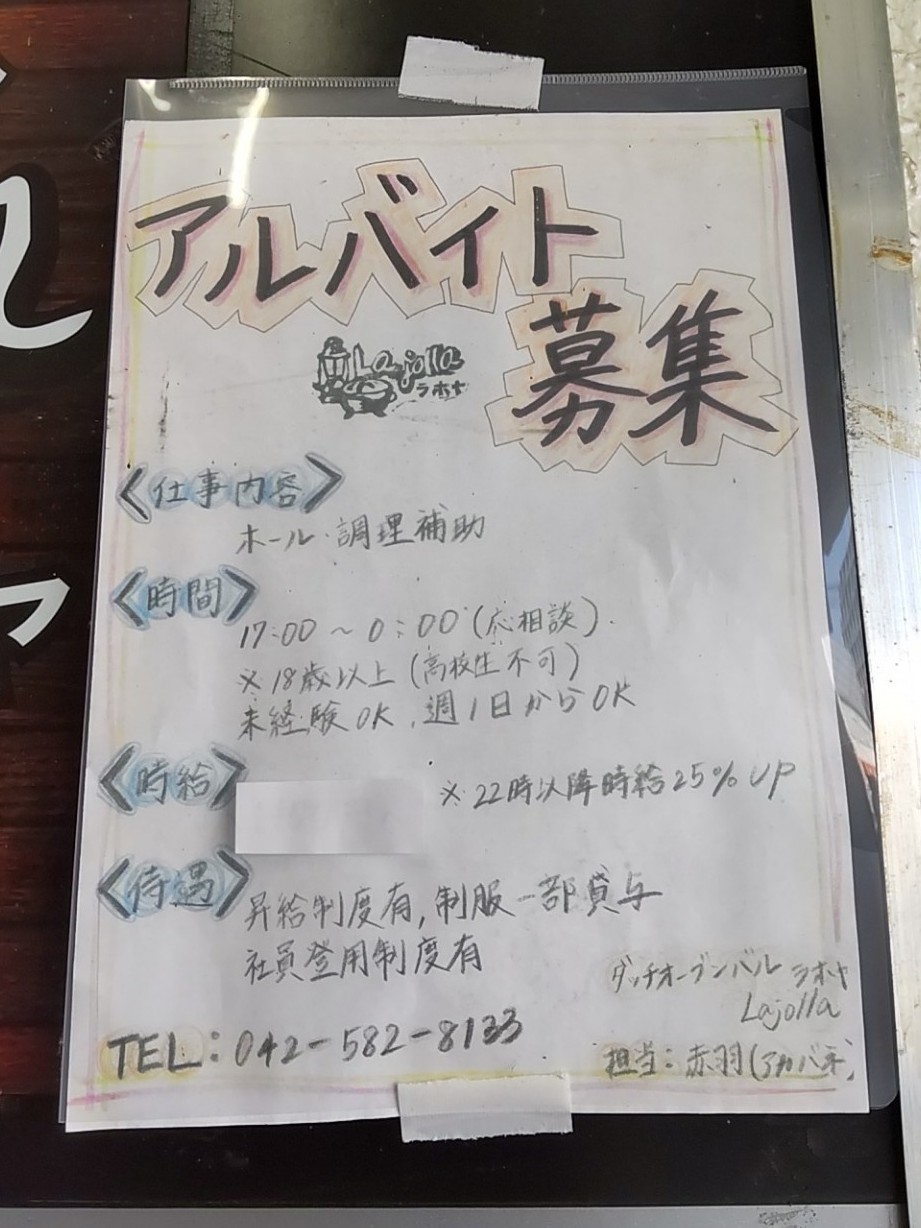 アルバイト
募集
La jolla
ラホヤ
〈仕事内容〉
ホール・調理補助
〈時間〉
17:00 ~ 0:00 (応相談).
※18歳以上 (高校生不可)
未経験OK, 週1日からOK
〈時給〉
※22時以降時給25% UP
〈待遇〉
昇給制度有, 制服一部貸与
社員登用制度有
ダッチオーブンバル ラホヤ
Lajolla
TEL: 042-582-8133
担当: 赤羽(アカバネ)